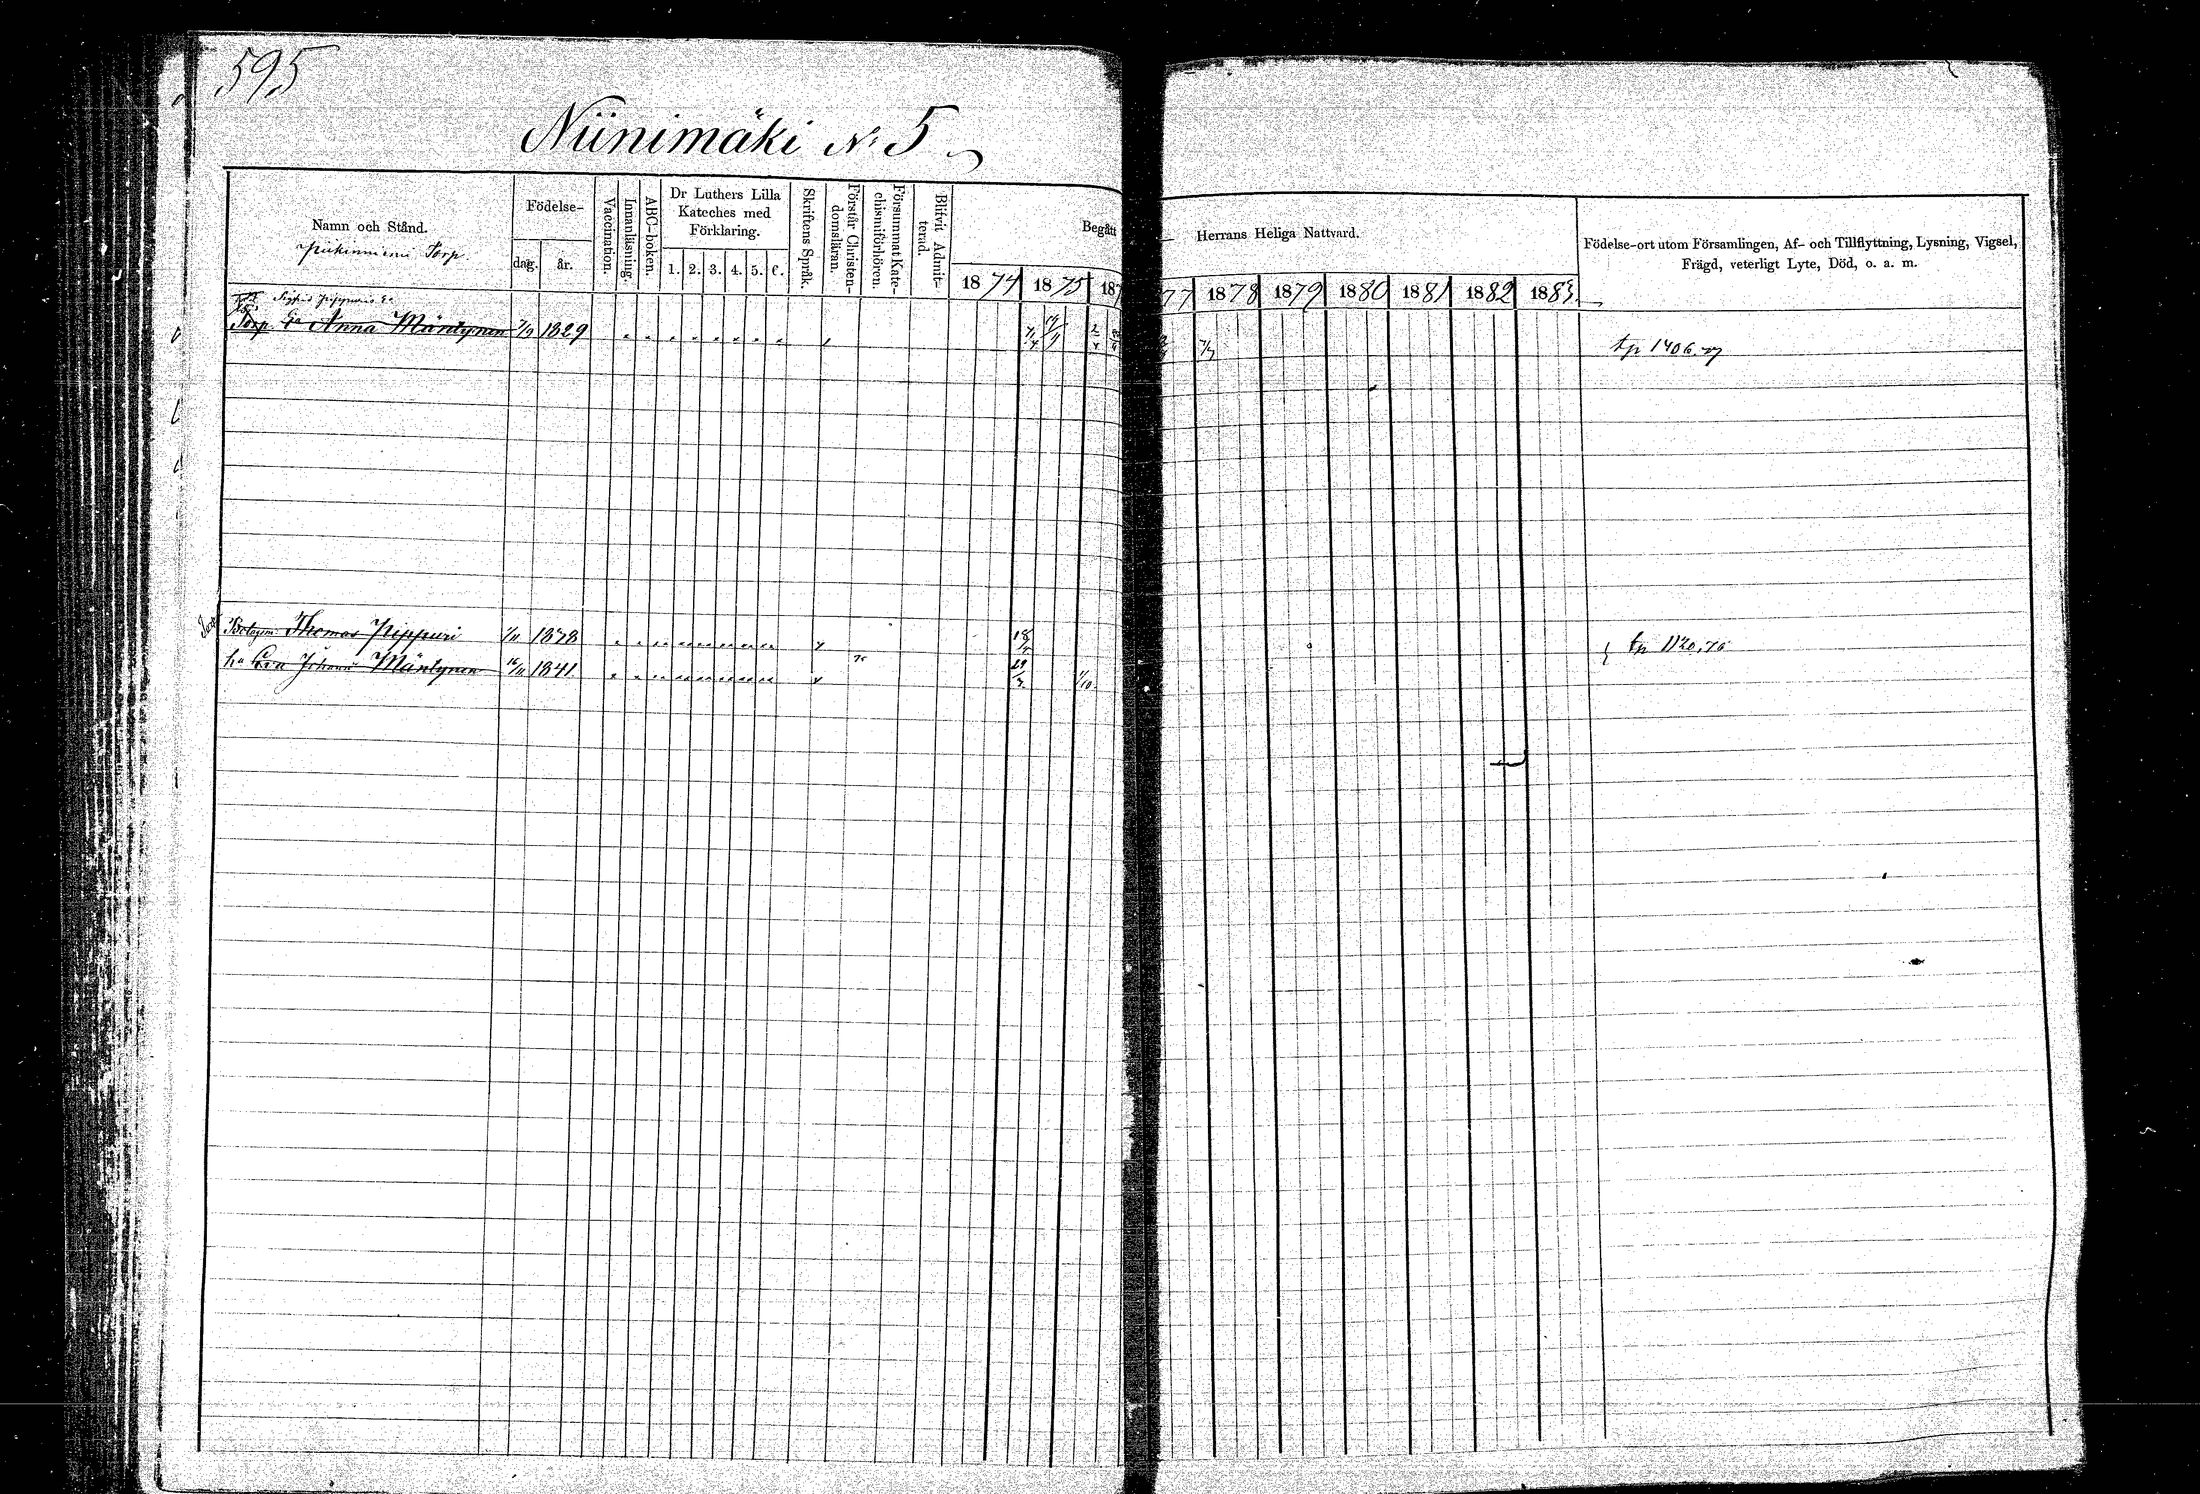 595
Niinimäki No 5
Namn och Stånd.
Torp.
Födelse-
dag.
år.
Vaccination.
Innanläsning.
ABC-boken.
Dr Luthers Lilla Kateches med Förklaring.
1. 2. 3. 4. 5. 6.
Skriftens Språk.
Förstår Christen-domsläran.
Försummat Kate-chismiförhören.
Blifvit Admit-terad.
Begått
Herrans Heliga Nattvard.
1874 1875 187
77 1878 1879 1880 1881 1882 1883
Födelse-ort utom Församlingen, Af- och Tillflyttning, Lysning, Vigsel,
Frägd, veterligt Lyte, Död, o. a. m.
Torp. Ea Anna Mäntynen 7/9 1829
7/4
7/7
tp 1406.77
Thomas Pippuri 1/11 1838
tp 1120.76
Eva Johanns Mäntynen 16/11 1841
1/10